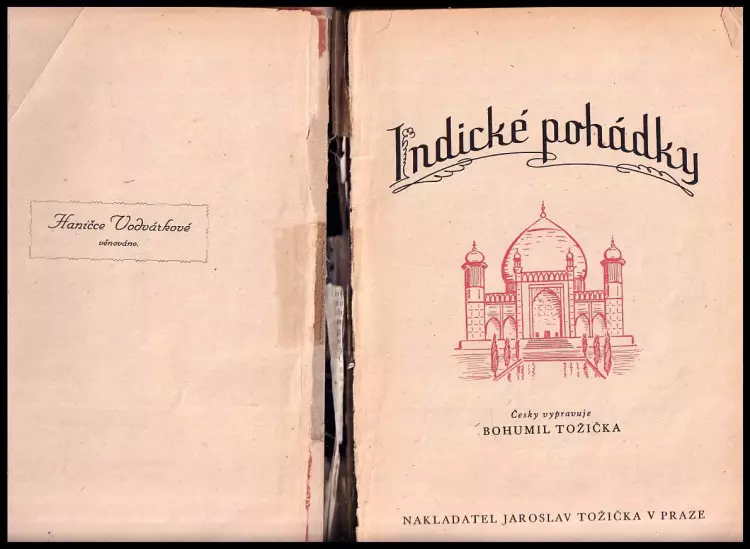 Haničce Vodvárkové
věnováno.
Indické pohádky
Česky vypravuje
BOHUMIL TOŽIČKA
NAKLADATEL JAROSLAV TOŽIČKA V PRAZE